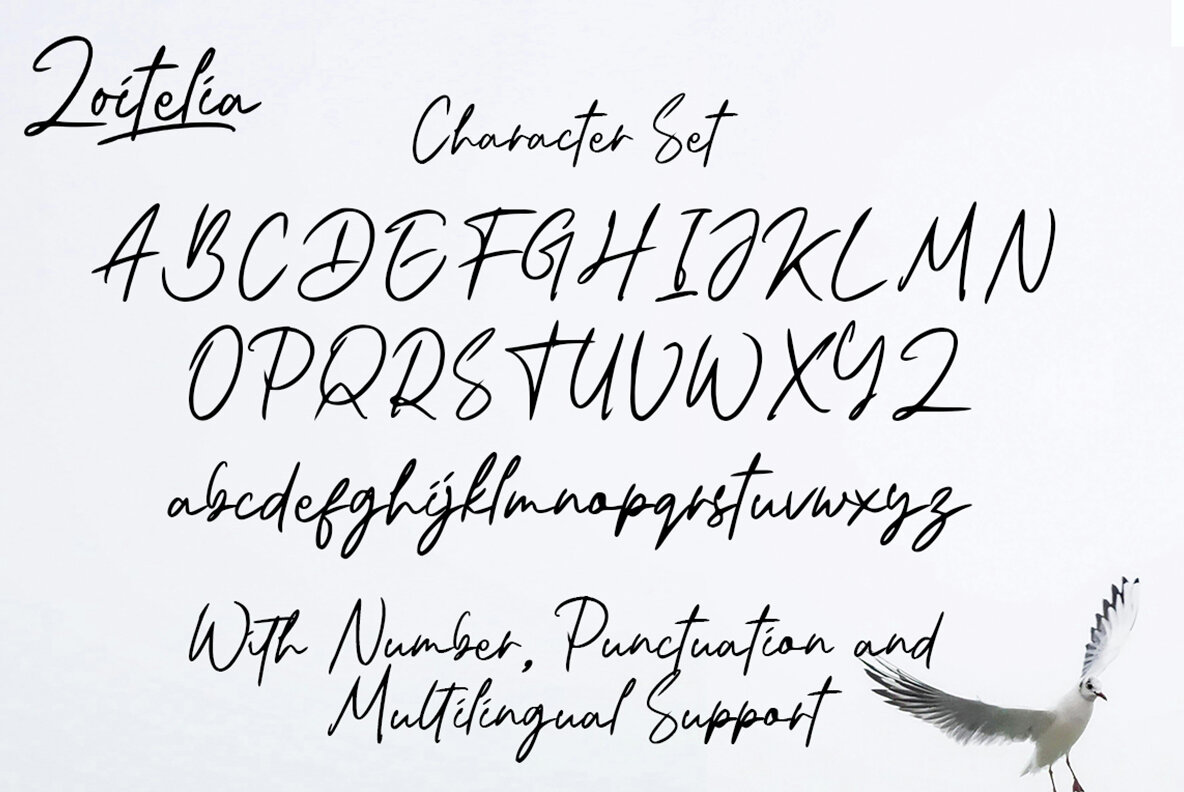 Zoitelia
Character Set
ABCDEFGHIJKLMN
OPQRSTUVWXYZ
abcdefghijklmnopqrstuvwxyz
With Number, Punctuation and
Multilingual Support